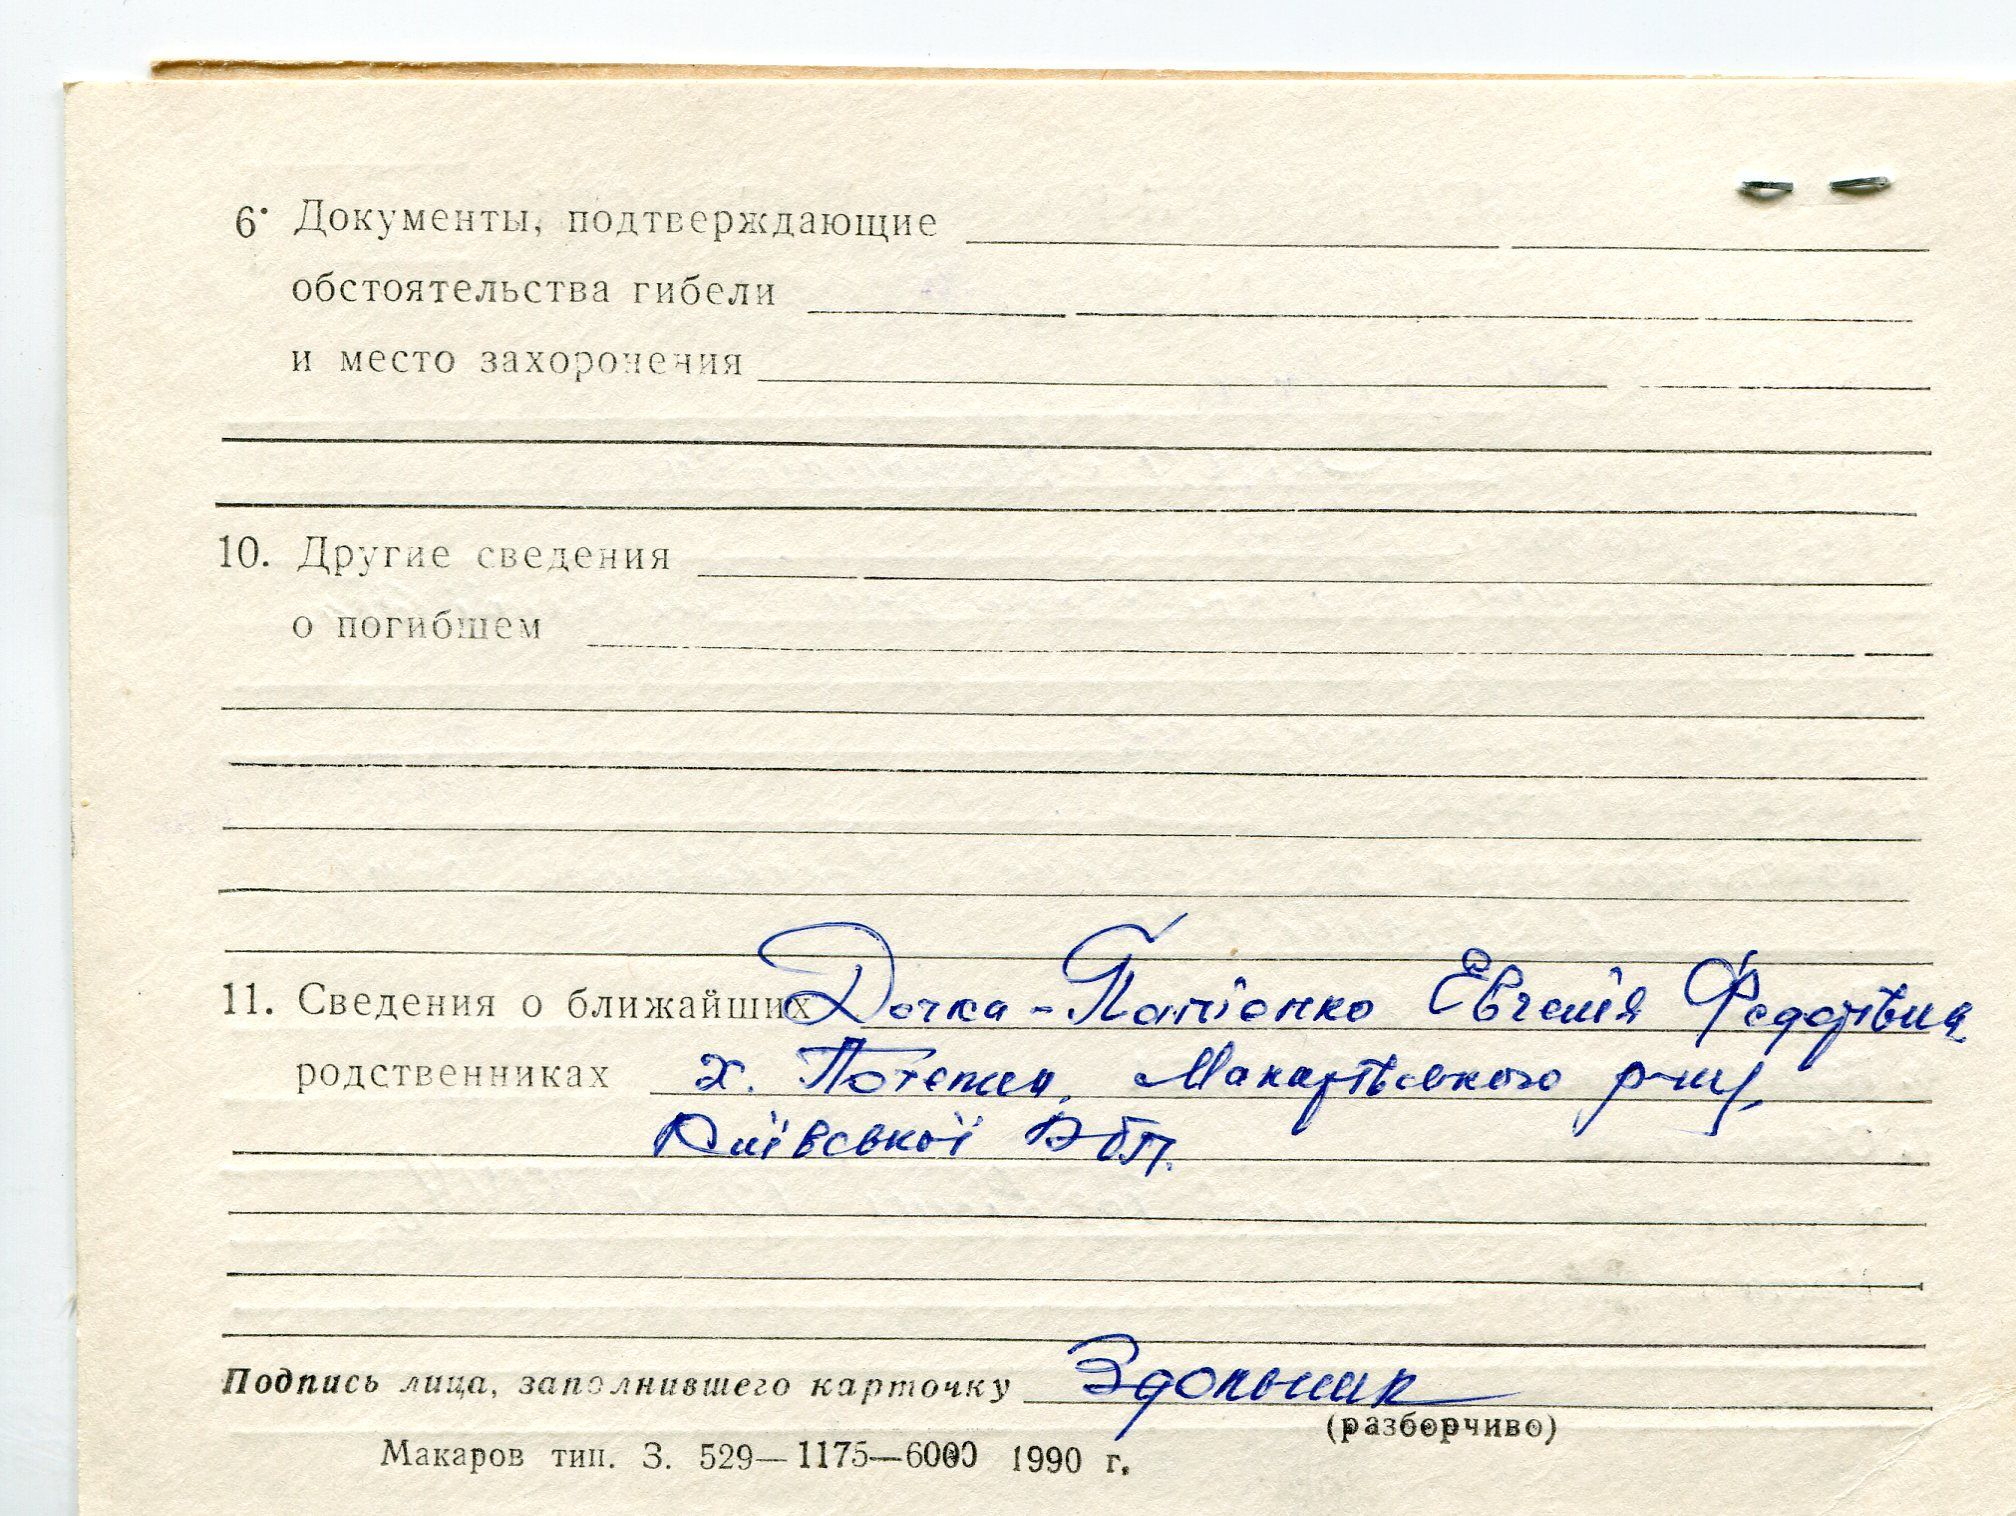 6. Документы, подтверждающие
обстоятельства гибели
и место захоронения
10. Другие сведения
о погибшем
11. Сведения о ближайших Дочка - Евгенія Федорівна
родственниках х. Макарівського р-ну,
Київської обл.
Подпись лица, заполнившего карточку
(разборчиво)
Макаров тип. З. 529—1175—6000 1990 г.